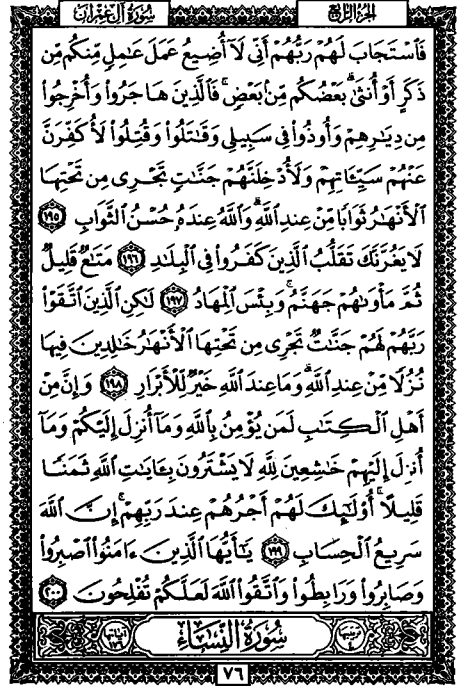 الجزء الرابع
سورة آل عمران
فَٱسْتَجَابَ لَهُمْ رَبُّهُمْ أَنِّى لَآ أُضِيعُ عَمَلَ عَٰمِلٍ مِّنكُم مِّن
ذَكَرٍ أَوْ أُنثَىٰ ۖ بَعْضُكُم مِّنۢ بَعْضٍ ۖ فَٱلَّذِينَ هَاجَرُوا۟ وَأُخْرِجُوا۟
مِن دِيَٰرِهِمْ وَأُوذُوا۟ فِى سَبِيلِى وَقَٰتَلُوا۟ وَقُتِلُوا۟ لَأُكَفِّرَنَّ
عَنْهُمْ سَيِّـَٔاتِهِمْ وَلَأُدْخِلَنَّهُمْ جَنَّٰتٍ تَجْرِى مِن تَحْتِهَا
ٱلْأَنْهَٰرُ ثَوَابًا مِّنْ عِندِ ٱللَّهِ ۗ وَٱللَّهُ عِندَهُۥ حُسْنُ ٱلثَّوَابِ ١٩٥
لَا يَغُرَّنَّكَ تَقَلُّبُ ٱلَّذِينَ كَفَرُوا۟ فِى ٱلْبِلَٰدِ ١٩٦ مَتَٰعٌ قَلِيلٌ
ثُمَّ مَأْوَىٰهُمْ جَهَنَّمُ ۚ وَبِئْسَ ٱلْمِهَادُ ١٩٧ لَٰكِنِ ٱلَّذِينَ ٱتَّقَوْا۟
رَبَّهُمْ لَهُمْ جَنَّٰتٌ تَجْرِى مِن تَحْتِهَا ٱلْأَنْهَٰرُ خَٰلِدِينَ فِيهَا
نُزُلًا مِّنْ عِندِ ٱللَّهِ ۗ وَمَا عِندَ ٱللَّهِ خَيْرٌ لِّلْأَبْرَارِ ١٩٨ وَإِنَّ مِنْ
أَهْلِ ٱلْكِتَٰبِ لَمَن يُؤْمِنُ بِٱللَّهِ وَمَآ أُنزِلَ إِلَيْكُمْ وَمَآ
أُنزِلَ إِلَيْهِمْ خَٰشِعِينَ لِلَّهِ لَا يَشْتَرُونَ بِـَٔايَٰتِ ٱللَّهِ ثَمَنًا
قَلِيلًا ۗ أُو۟لَٰٓئِكَ لَهُمْ أَجْرُهُمْ عِندَ رَبِّهِمْ ۗ إِنَّ ٱللَّهَ
سَرِيعُ ٱلْحِسَابِ ١٩٩ يَٰٓأَيُّهَا ٱلَّذِينَ ءَامَنُوا۟ ٱصْبِرُوا۟
وَصَابِرُوا۟ وَرَابِطُوا۟ وَٱتَّقُوا۟ ٱللَّهَ لَعَلَّكُمْ تُفْلِحُونَ ٢٠٠
ترتيبها ٤ سُورَةُ النِّسَاءِ آياتها ١٧٦
٧٦